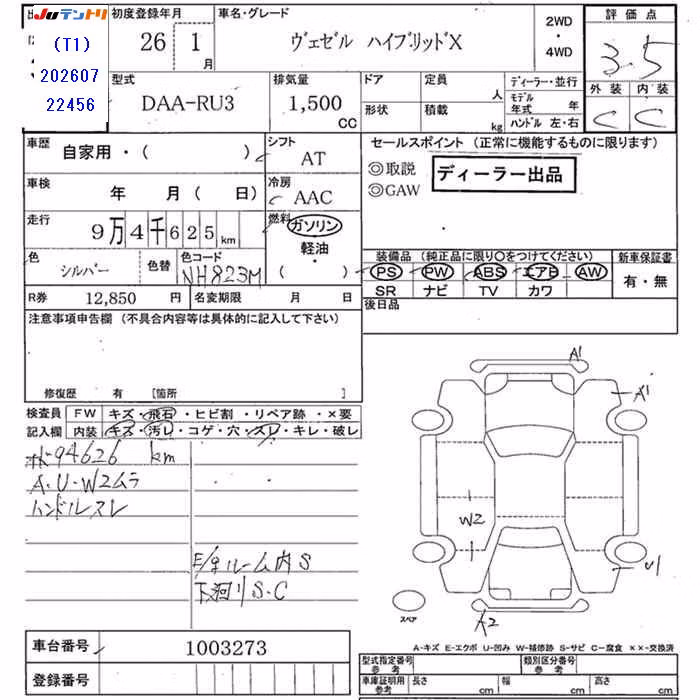 JUテントリ
(T1)
202607
22456
初度登録年月
26 1 月
車名・グレード
ヴェゼル ハイブリッドX
2WD
・
4WD
評価点
3.5
外装 内装
C C
型式
DAA-RU3
排気量
1,500
CC
ドア
形状
定員 人
積載 kg
ディーラー・並行
モデル年式 年
ハンドル 左・右
車歴
自家用・( )
シフト
AT
車検
年 月( 日)
冷房
AAC
走行
9万4千625km
燃料
ガソリン
軽油
・
( )
色
シルバー
色替
色コード
NH823M
R券 12,850 円
名変期限 月 日
セールスポイント (正常に機能するものに限ります)
◎取説
◎GAW
ディーラー出品
装備品 (純正品に限り○をつけてください)
PS PW ABS エアB AW
SR ナビ TV カワ
新車保証書
有・無
後日品
注意事項申告欄 (不具合内容等は具体的に記入して下さい)
修復歴 有 [箇所 ]
検査員
記入欄
FW キズ・飛石・ヒビ割・リペア跡・×要
内装 キズ・汚レ・コゲ・穴・スレ・キレ・破レ
94626 km
A・U・W2ムラ
ハンドルスレ
E/gルーム内S
下廻りS・C
A1
A1
W2
U1
A2
スペア
A-キズ E-エクボ U-凹み W-補修跡 S-サビ C-腐食 ××-交換済
車台番号 1003273
登録番号
型式指定番号
参考
類別区分番号
参考
車庫証明用
参考
長さ cm
幅 cm
高さ cm